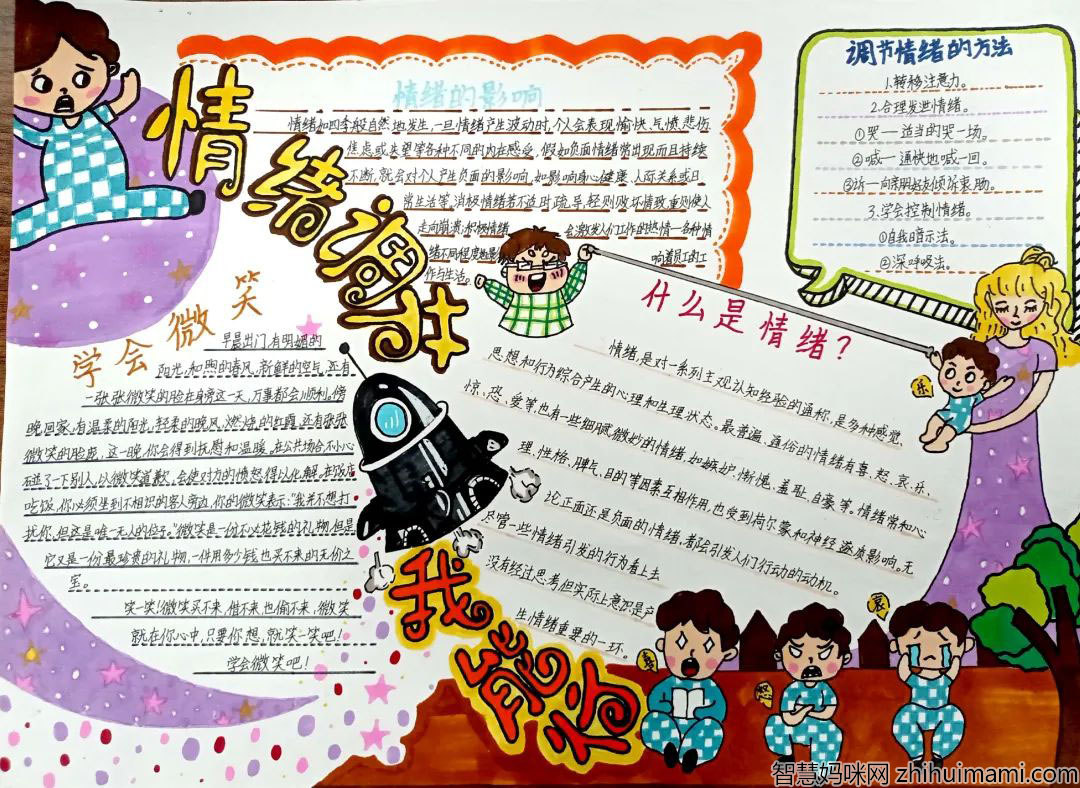 情绪调节
我能行
情绪的影响
情绪如四季般自然地发生,一旦情绪产生波动时,个人会表现愉快、气愤、悲伤、
焦虑或失望等各种不同的内在感受,假如负面情绪常出现而且持续
不断,就会对个人产生负面的影响,如影响身心健康、人际关系或日
常生活等。消极情绪若不适时疏导,轻则败坏情致,重则使人
走向崩溃;积极情绪 会激发人们工作的热情
绪不同程度地影 响着员工的工
作与生活。
调节情绪的方法
1.转移注意力。
2.合理发泄情绪。
①哭—适当的哭一场。
②喊—通快地喊一回。
③诉—向亲朋好友倾诉衷肠。
3.学会控制情绪。
①自我暗示法。
②深呼吸法。
学会微笑
早晨出门,有明媚的
阳光,和煦的春风,新鲜的空气,还有
一张张微笑的脸在身旁这一天,万事都会顺利。傍
晚回家,有温柔的阳光,轻柔的晚风,燃烧的红霞,还有张张
微笑的脸庞,这一晚,你会得到抚慰和温暖。在公共场合不小心
碰了一下别人,以微笑道歉,会使对方的愤怒得以化解。在饭店
吃饭,你必须坐到不相识的客人旁边,你的微笑表示:"我并不想打
扰你,但这是唯一无人的位子。"微笑是一份不以花钱的礼物,但是
它又是一份最珍贵的礼物,一件用多少钱也买不来的无价之
宝。
笑一笑!微笑买不来,借不来,也偷不来,微笑
就在你心中,只要你想,就笑一笑吧!
学会微笑吧!
什么是情绪?
情绪,是对一系列主观认知经验的通称,是多种感觉、
思想和行为综合产生的心理和生理状态。最普遍、通俗的情绪有喜、怒、哀、乐、
惊、恐、爱等,也有一些细腻微妙的情绪,如嫉妒、惭愧、羞耻、自豪等。情绪常和心
理、性格、脾气、目的等因素互相作用,也受到荷尔蒙和神经递质影响。无
论正面还是负面的情绪,都会引发人们行动的动机。
尽管一些情绪引发的行为看上去
没有经过思考,但实际上意识是产
生情绪重要的一环。
乐
喜
怒
哀
智慧妈咪网 zhihuimami.com